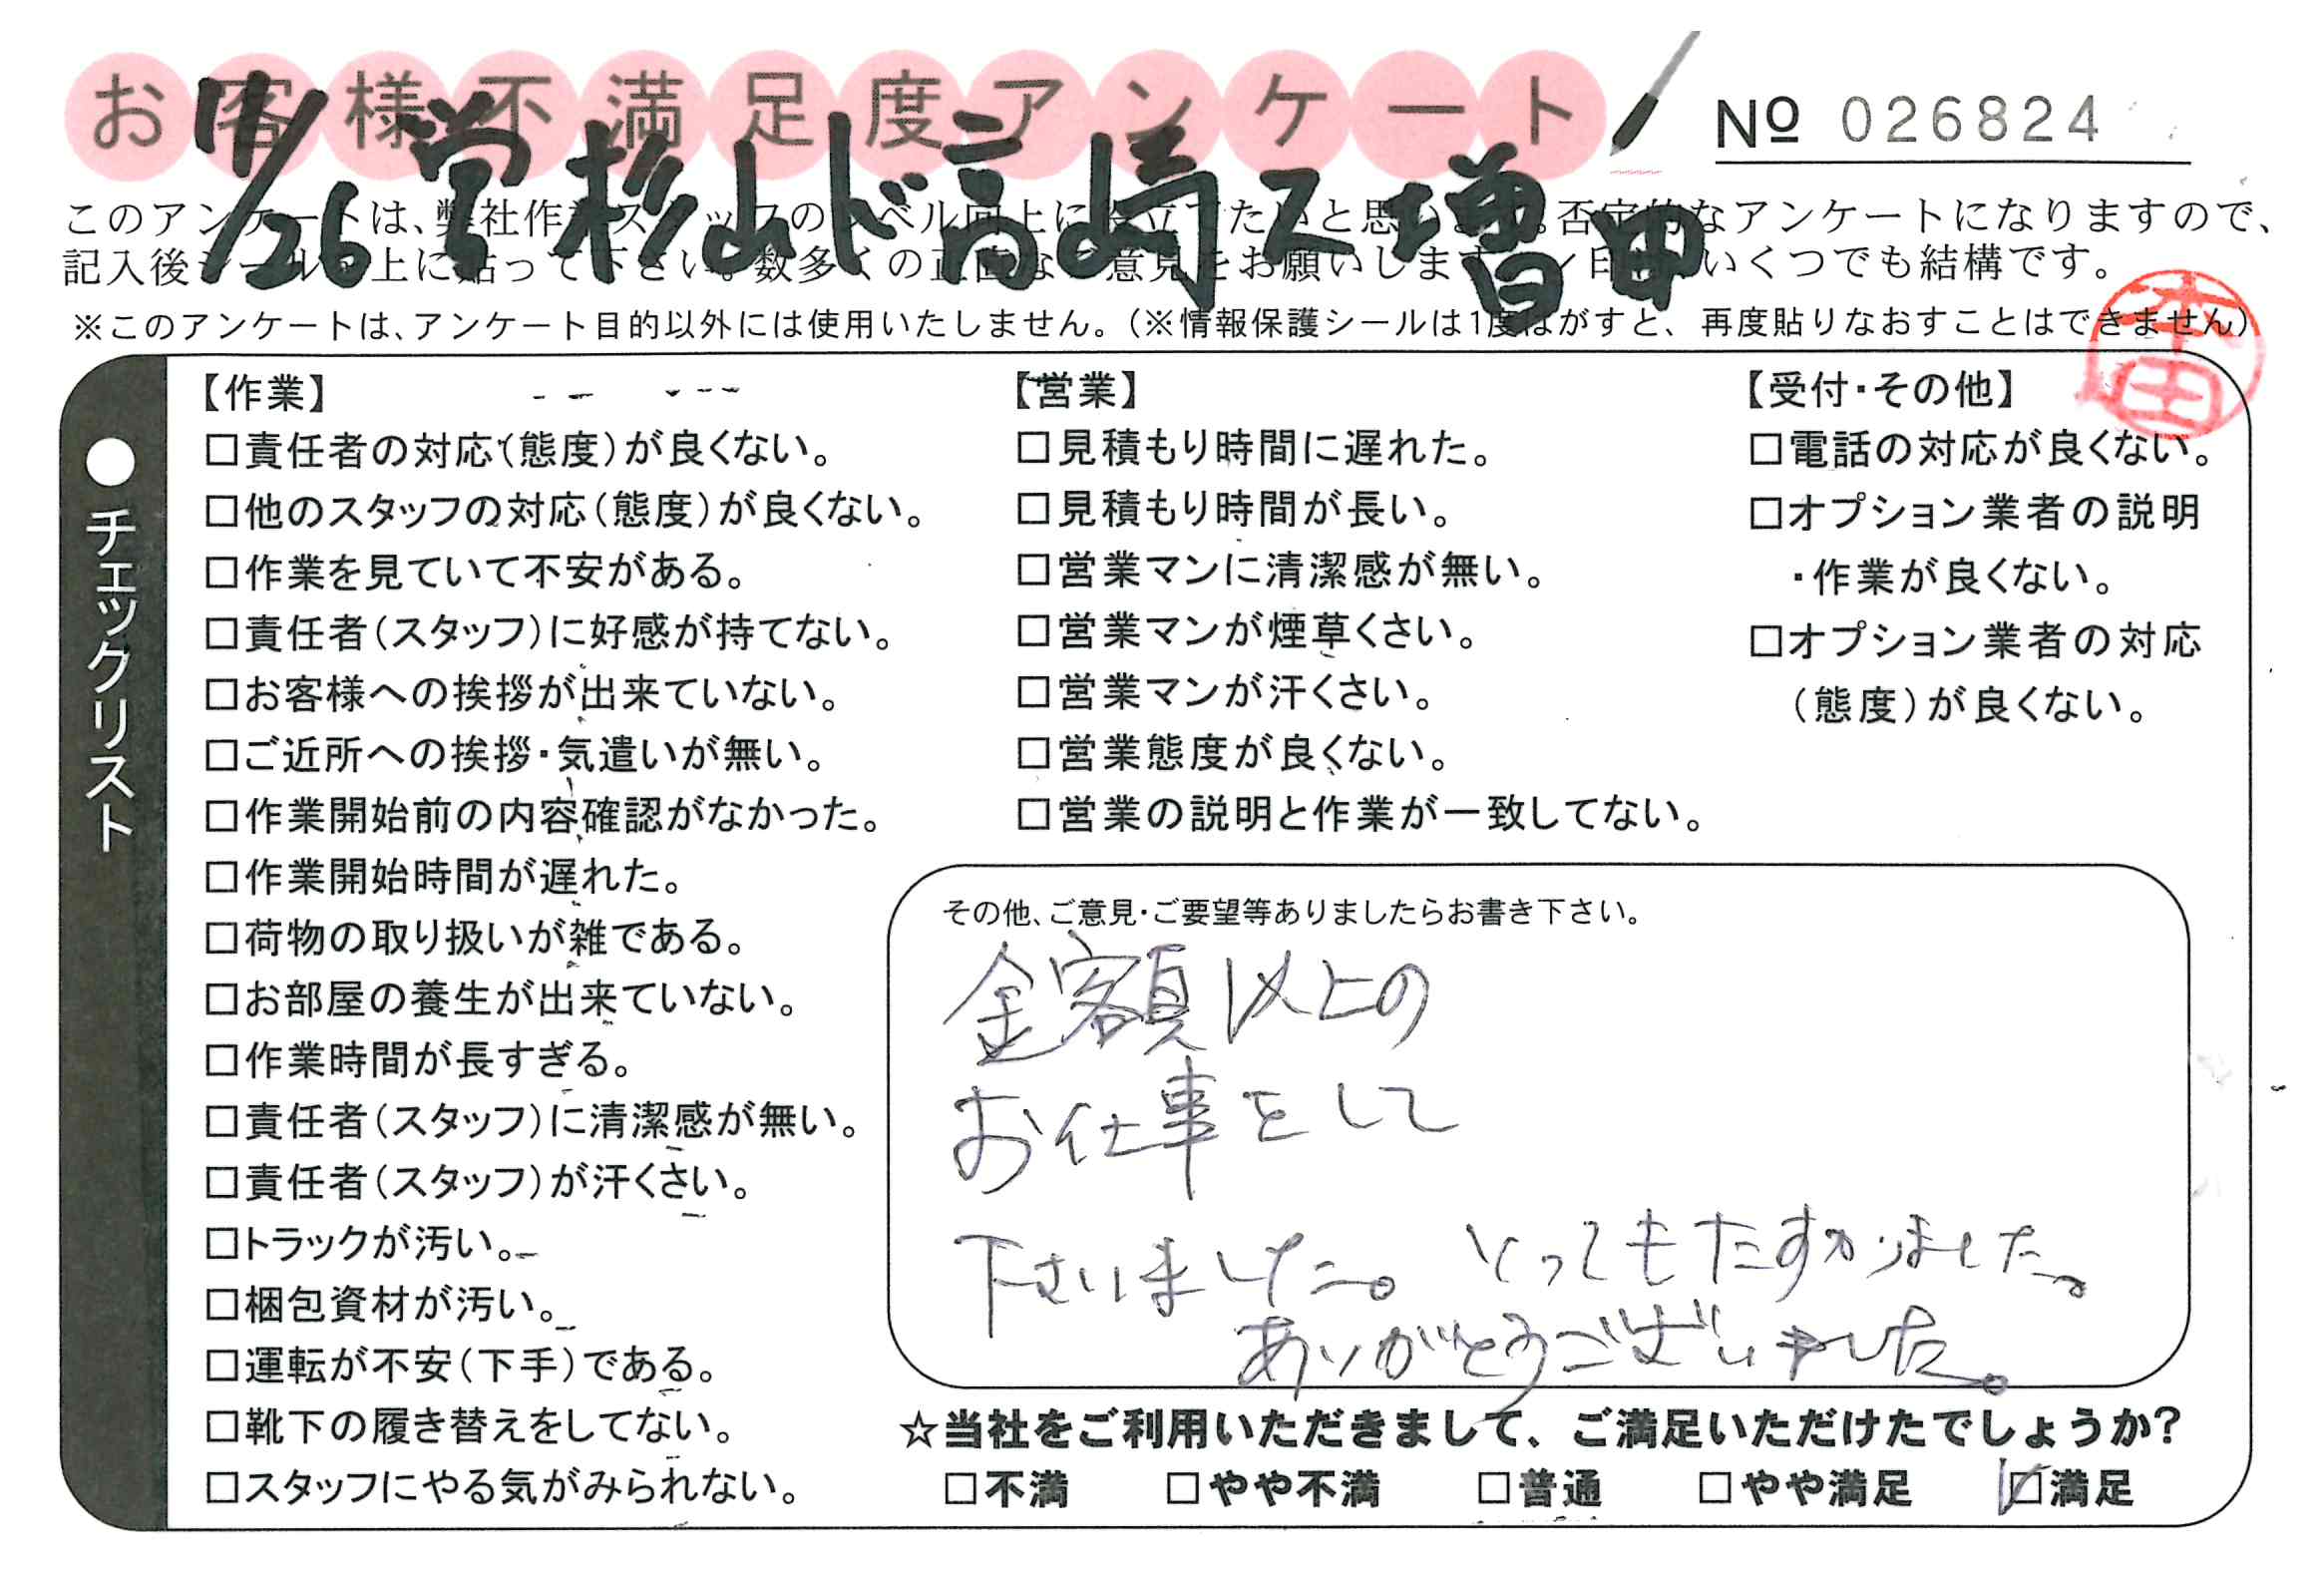 お客様不満足度アンケート
№ 026824
11/26 営杉山ド高崎ス増田
このアンケートは、弊社作業スタッフのレベル向上に役立てたいと思います。否定的なアンケートになりますので、
記入後シールを上に貼って下さい。数多くの正直なご意見をお願いします。✓印はいくつでも結構です。
※このアンケートは、アンケート目的以外には使用いたしません。(※情報保護シールは1度はがすと、再度貼りなおすことはできません)
本田
●チェックリスト
【作業】
□責任者の対応(態度)が良くない。
□他のスタッフの対応(態度)が良くない。
□作業を見ていて不安がある。
□責任者(スタッフ)に好感が持てない。
□お客様への挨拶が出来ていない。
□ご近所への挨拶・気遣いが無い。
□作業開始前の内容確認がなかった。
□作業開始時間が遅れた。
□荷物の取り扱いが雑である。
□お部屋の養生が出来ていない。
□作業時間が長すぎる。
□責任者(スタッフ)に清潔感が無い。
□責任者(スタッフ)が汗くさい。
□トラックが汚い。
□梱包資材が汚い。
□運転が不安(下手)である。
□靴下の履き替えをしてない。
□スタッフにやる気がみられない。
【営業】
□見積もり時間に遅れた。
□見積もり時間が長い。
□営業マンに清潔感が無い。
□営業マンが煙草くさい。
□営業マンが汗くさい。
□営業態度が良くない。
□営業の説明と作業が一致してない。
【受付・その他】
□電話の対応が良くない。
□オプション業者の説明
・作業が良くない。
□オプション業者の対応
(態度)が良くない。
その他、ご意見・ご要望等ありましたらお書き下さい。
金額以上の
お仕事をして
下さいました。とってもたすかりました。
ありがとうございました。
☆当社をご利用いただきまして、ご満足いただけたでしょうか?
□不満 □やや不満 □普通 □やや満足 ☑満足